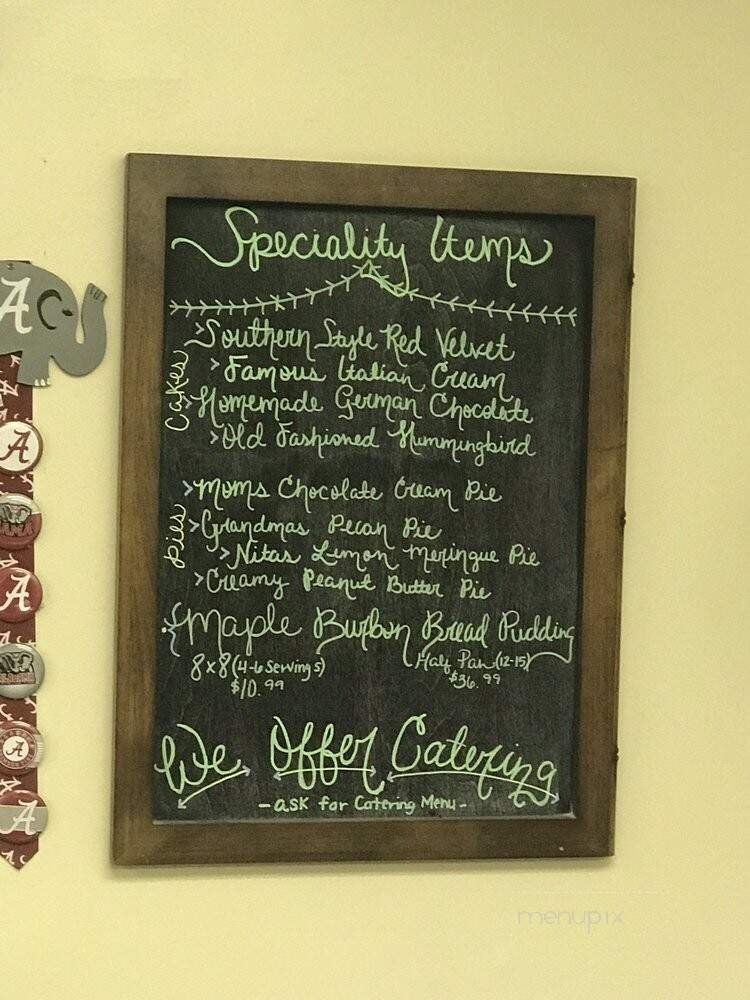 Speciality Items
Cakes
>Southern Style Red Velvet
>Famous Italian Cream
>Homemade German Chocolate
>Old Fashioned Hummingbird
Pies
>Moms Chocolate Cream Pie
>Grandmas Pecan Pie
>Nitas Lemon Meringue Pie
>Creamy Peanut Butter Pie
Maple Burbon Bread Pudding
8x8 (4-6 Servings) Half Pan (12-15)
$10.99 $36.99
We Offer Catering
-ask for Catering Menu-
A
A
A
A
A
menupix